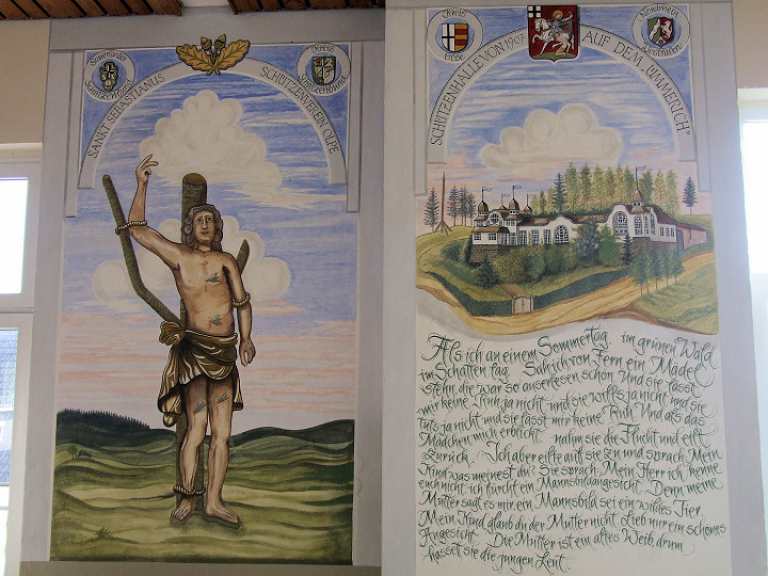 Sauerländer
Schützenbund
Kreis
Schützenbund
SANKT SEBASTIANUS SCHÜTZENVEREIN OLPE
Kreis
Olpe
Nordrhein
Westfalen
SCHÜTZENHALLE VON 1907 AUF DEM „ÜMMERICH"
Als ich an einem Sommertag, im grünen Wald
im Schatten lag. Sah ich von Fern ein Mädel
stehn, die war so auserlesen schön. Und sie lässt
mir keine Ruh, ja nicht, und sie will's ja nicht und sie
tut's ja nicht und sie lässt mir keine Ruh. Und als das
Mädchen mich erblickt, nahm sie die Flucht und eilt
zurück. Ich aber eilte auf sie zu und sprach: Mein
Kind was meinest du? Sie sprach: Mein Herr ich kenne
euch nicht, ich fürcht ein Mannsbildangesicht. Denn meine
Mutter sagt es mir, ein Mannsbild sei ein wildes Tier.
Mein Kind glaub du der Mutter nicht, Lieb mir ein schönes
Angesicht. Die Mutter ist ein altes Weib, drum
hasset sie die jungen Leut.